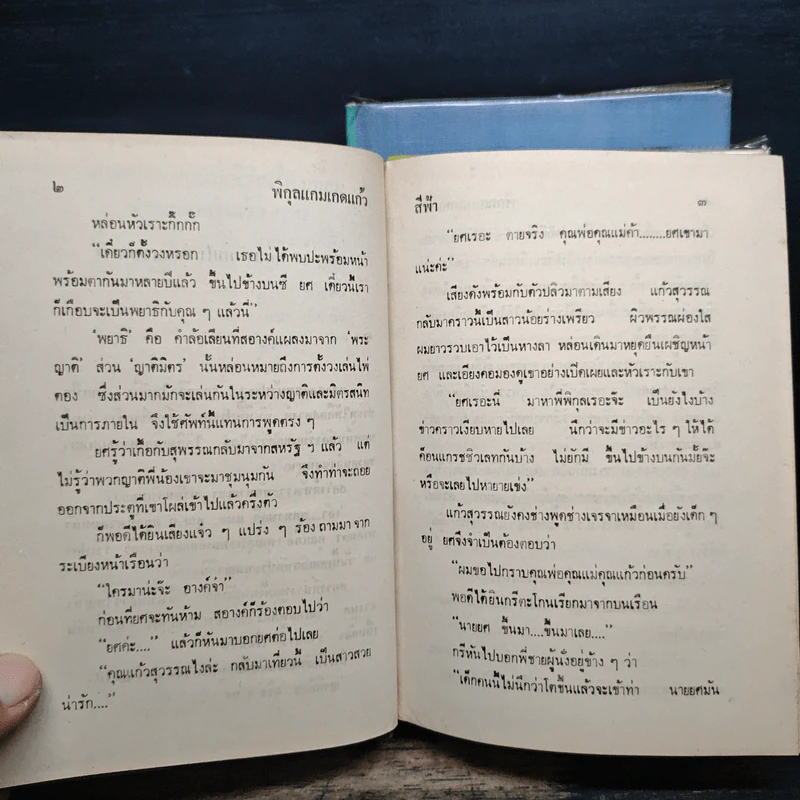 ๒ พิกุลแกมเกดแก้ว
หล่อนหัวเราะกิ๊กกั๊ก
“เดี๋ยวก็ตั้งวงหรอก เธอไม่ได้พบปะพร้อมหน้า
พร้อมตากันมาหลายปีแล้ว ขึ้นไปข้างบนซี ยศ เดี๋ยวนี้เรา
ก็เกือบจะเป็นพยาธิกับคุณ ๆ แล้วนี่”
‘พยาธิ’ คือ คำล้อเลียนที่สอางค์แผลงมาจาก ‘พระ
ญาติ’ ส่วน ‘ญาติมิตร’ นั้นหล่อนหมายถึงการตั้งวงเล่นไพ่
ตอง ซึ่งส่วนมากมักจะเล่นกันในระหว่างญาติและมิตรสนิท
เป็นการภายใน จึงใช้ศัพท์นี้แทนการพูดตรง ๆ
ยศรู้ว่าเกื้อกับสุพรรณกลับมาจากสหรัฐ ฯ แล้ว แต่
ไม่รู้ว่าพวกญาติพี่น้องเขาจะมาชุมนุมกัน จึงทำท่าจะถอย
ออกจากประตูที่เขาโผล่เข้าไปแล้วครึ่งตัว
ก็พอดีได้ยินเสียงแจ๋ว ๆ แปร่ง ๆ ร้องถามมาจาก
ระเบียงหน้าเรือนว่า
“ใครมาน่ะจ๊ะ อางค์จ๋า”
ก่อนที่ยศจะทันห้าม สอางค์ก็ร้องตอบไปว่า
“ยศค่ะ....” แล้วก็หันมาบอกยศต่อไปเลย
“คุณแก้วสุวรรณไงล่ะ กลับมาเที่ยวนี้ เป็นสาวสวย
น่ารัก....”
สีฟ้า ๓
“ยศเรอะ ตายจริง คุณพ่อคุณแม่ค้า........ยศเขามา
แน่ะค่ะ”
เสียงดังพร้อมกับตัวปลิวมาตามเสียง แก้วสุวรรณ
กลับมาคราวนี้เป็นสาวน้อยร่างเพรียว ผิวพรรณผ่องใส
ผมยาวรวบเอาไว้เป็นหางลา หล่อนเดินมาหยุดยืนเผชิญหน้า
ยศ และเอียงคอมองดูเขาอย่างเปิดเผยและหัวเราะกับเขา
“ยศเรอะนี่ มาหาพี่พิกุลเรอะจ๊ะ เป็นยังไงบ้าง
ข่าวคราวเงียบหายไปเลย นึกว่าจะมีข่าวอะไร ๆ ให้ได้
ค็อนแกรชชิวเลทกันบ้าง ไม่ยักมี ขึ้นไปข้างบนกันมั้ยจ๊ะ
หรือจะเลยไปหายายเข่ง”
แก้วสุวรรณยังคงช่างพูดช่างเจรจาเหมือนเมื่อยังเด็ก ๆ
อยู่ ยศจึงจำเป็นต้องตอบว่า
“ผมขอไปกราบคุณพ่อคุณแม่คุณแก้วก่อนครับ”
พอดีได้ยินกรีตะโกนเรียกมาจากบนเรือน
“นายยศ ขึ้นมา....ขึ้นมาเลย....”
กรีหันไปบอกพี่ชายผู้นั่งอยู่ข้าง ๆ ว่า
“เด็กคนนี้ไม่นึกว่าโตขึ้นแล้วจะเข้าท่า นายยศมัน